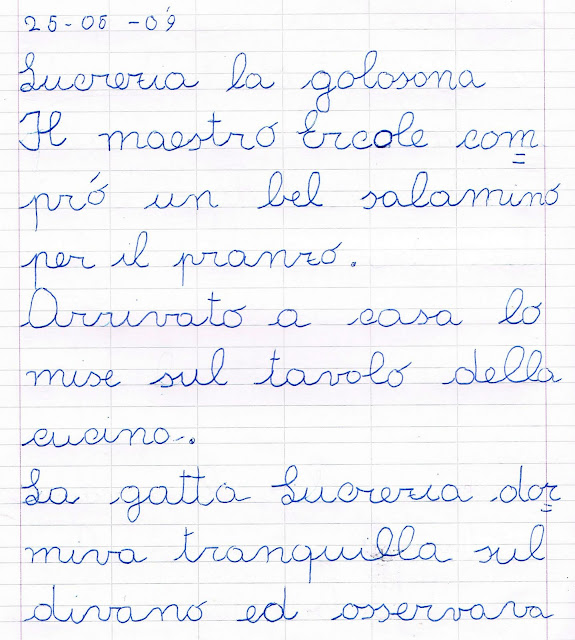 25-05-09
Lucrezia la golosona
Il maestro Ercole com=
prò un bel salamino
per il pranzo.
Arrivato a casa lo
mise sul tavolo della
cucina.
La gatta Lucrezia dor=
miva tranquilla sul
divano ed osservava